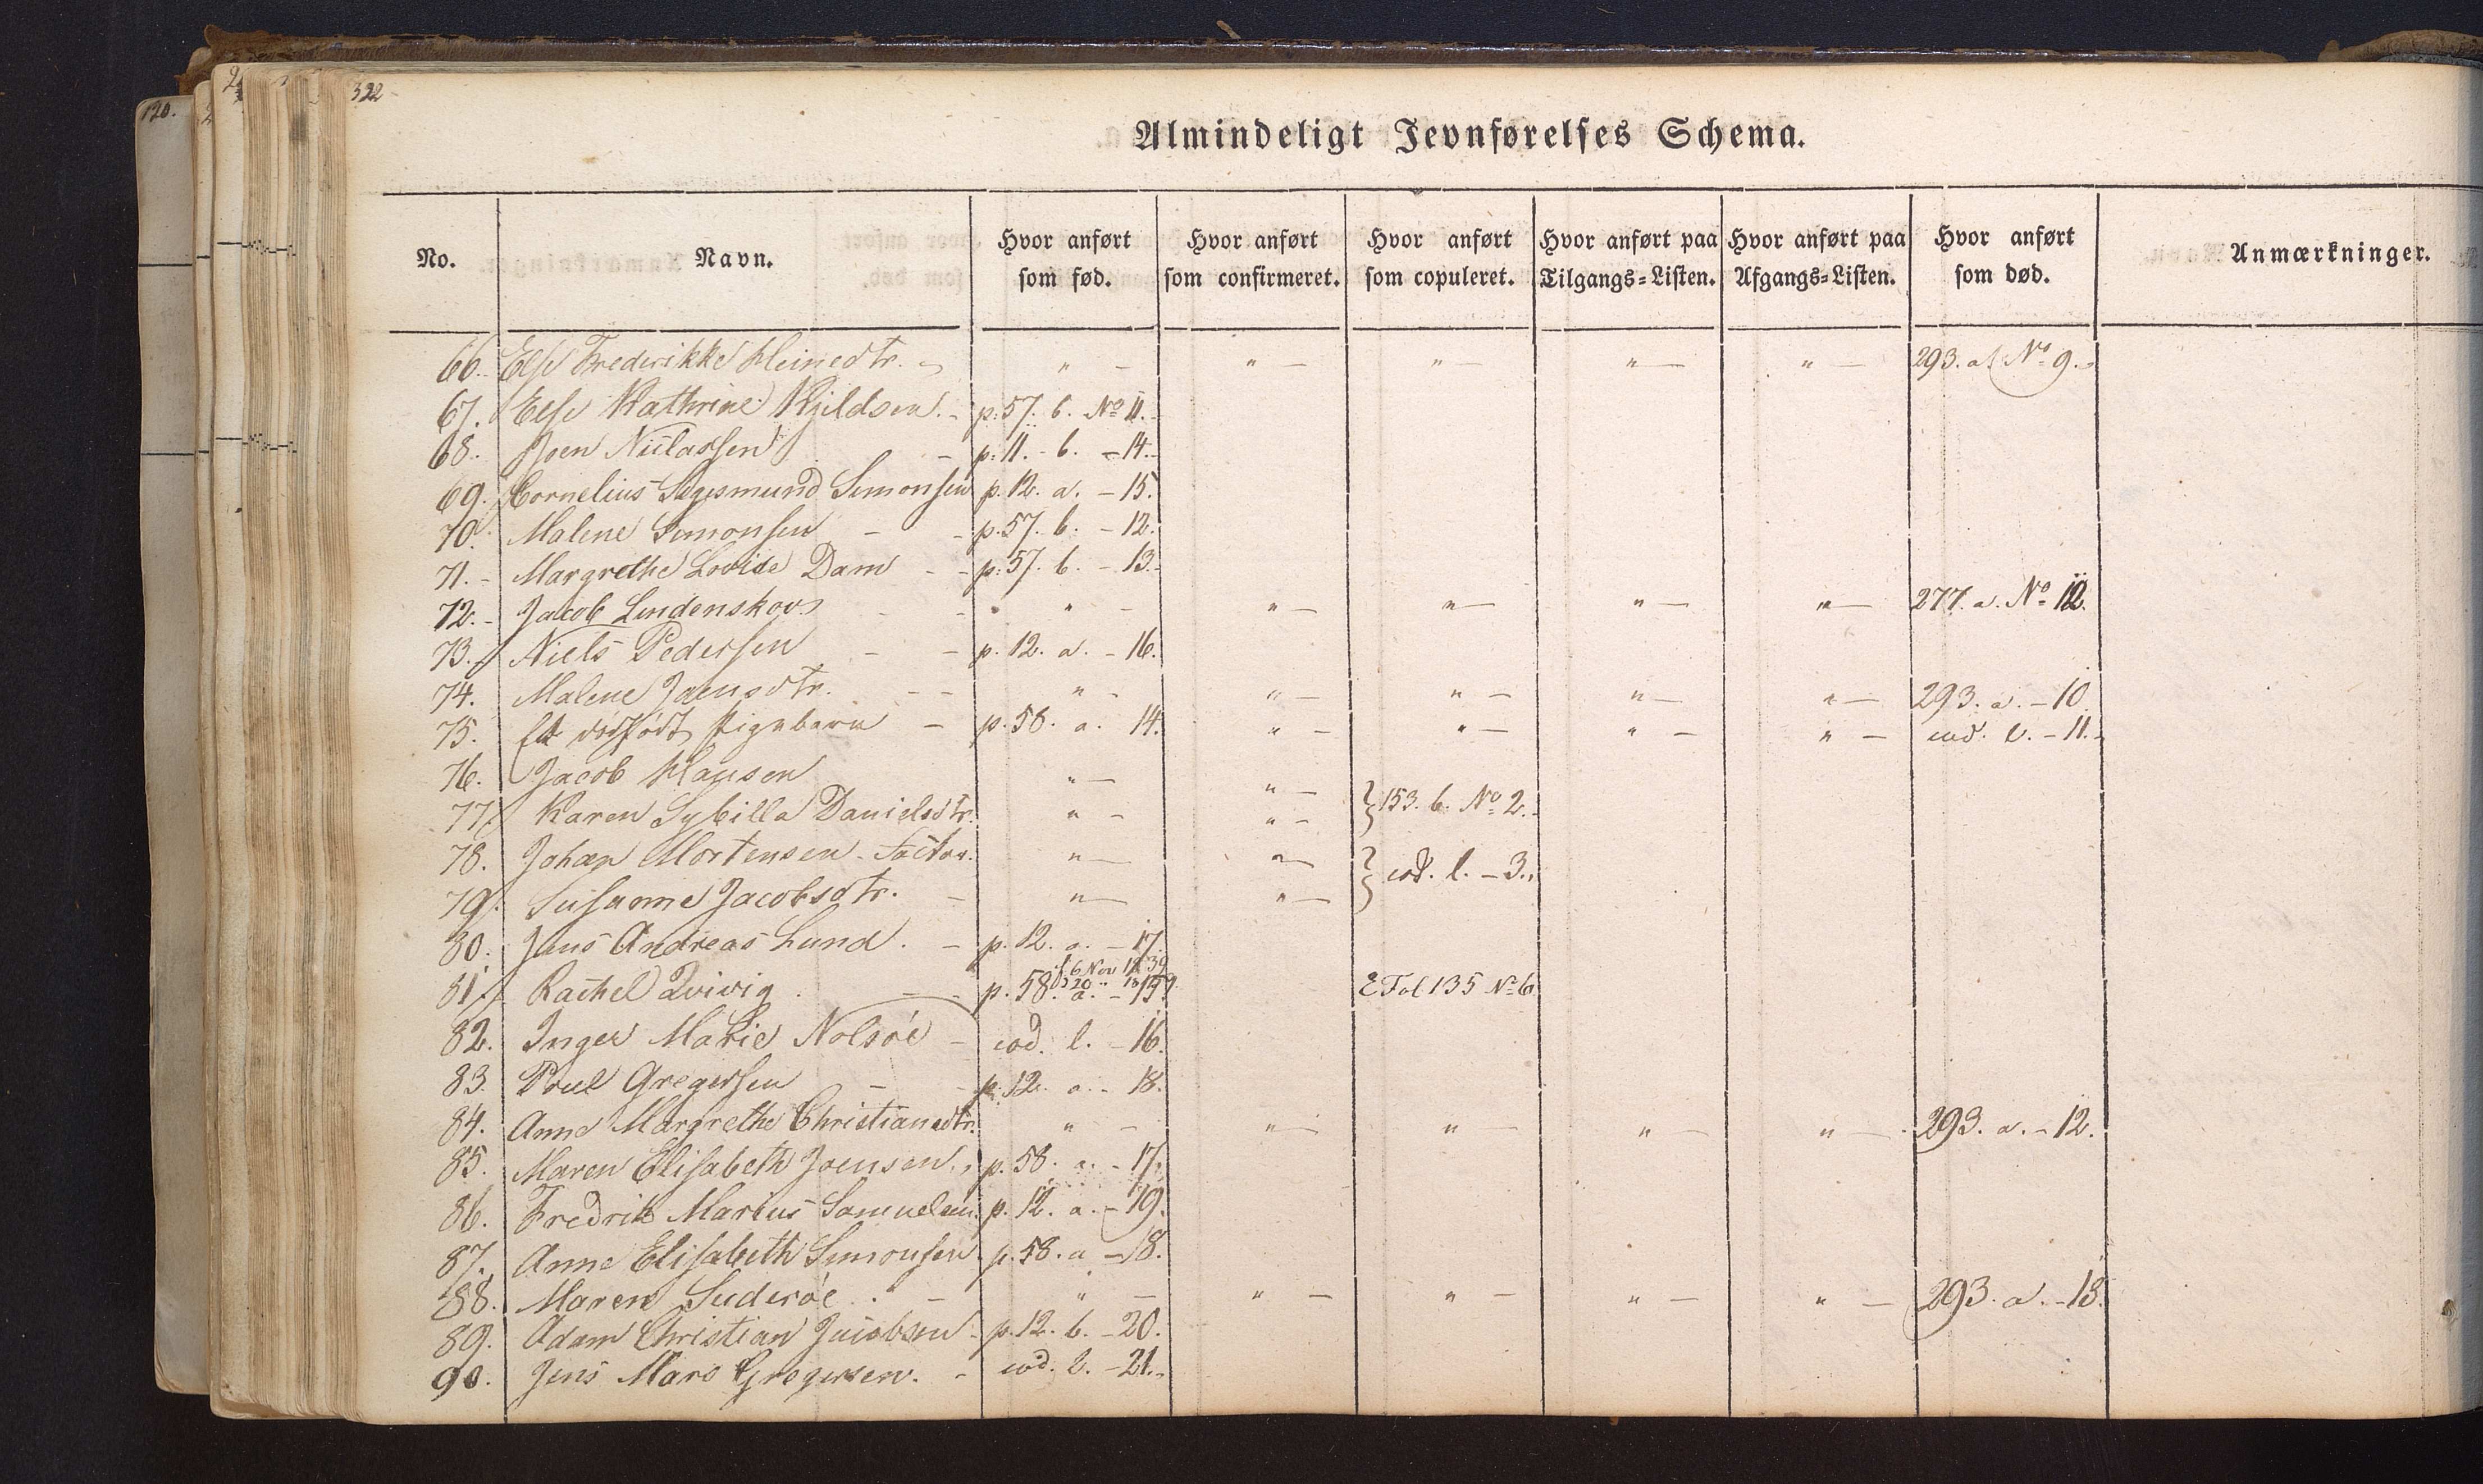 120.
322
Almindeligt Jevnførelses Schema.
No. Navn. Hvor anført som fød. Hvor anført som confirmeret. Hvor anført som copuleret. Hvor anført paa Tilgangs-Listen. Hvor anført paa Afgangs-Listen. Hvor anført som død. Anmærkninger.
66. Else Frederikke Heinedtr. " - " - " - " - " - 293. a. No 9.
67. Else Kathrine Kjeldsen. - p. 57. b. No 11.
68. Joen Niclassen - p. 11. - b. - 14.
69. Cornelius Segesmund Simonsen p. 12. a. - 15.
70. Malene Simonsen - - p. 57. b. - 12.
71. - Margrethe Lovise Dam - - p. 57. b. - 13.
72. - Jacob Lindenskov - - " - " - " - " - " - 277. a. No 12.
73. Niels Pedersen - - p. 12. a. - 16.
74. Malene Joensdtr. - - " - " - " - " - " - 293. a. - 10.
75. Et dødfødt Pigebarn - p. 58. a. 14. " - " - " - " - eod. l. - 11.
76. Jacob Hansen " - " -
77. Karen Sybilla Danielsdtr. " - " - } 153. b. No 2.
78. Johan Mortensen - Factor. " - " -
79. Susanne Jacobsdtr. - " - " - } eod. l. - 3.
80. Jens Andreas Lund. - p. 12. a. - 17.
81. Rachel Qvivig. - - p. 58. a. - 15. E Fol 135 No 6
82. Inger Marie Nolsöe - eod. l. - 16.
83. Poul Gregersen - - p. 12. a. - 18.
84. Anne Margrethe Christiansdtr. " - " - " - " - " - 293. a. - 12.
85. Maren Elisabeth Joensen. p. 58. a. - 17.
86. Fredrik Marius Samuelsen. p. 12. a. - 19.
87. Anne Elisabeth Simonsen p. 58. a - 18.
88. Maren Suderöe. - " - " - " - " - " - 293. a. - 13.
89. Adam Christian Jacobsen - p. 12. b. - 20.
90. Jens Mars Gregersen. - eod. l. - 21.